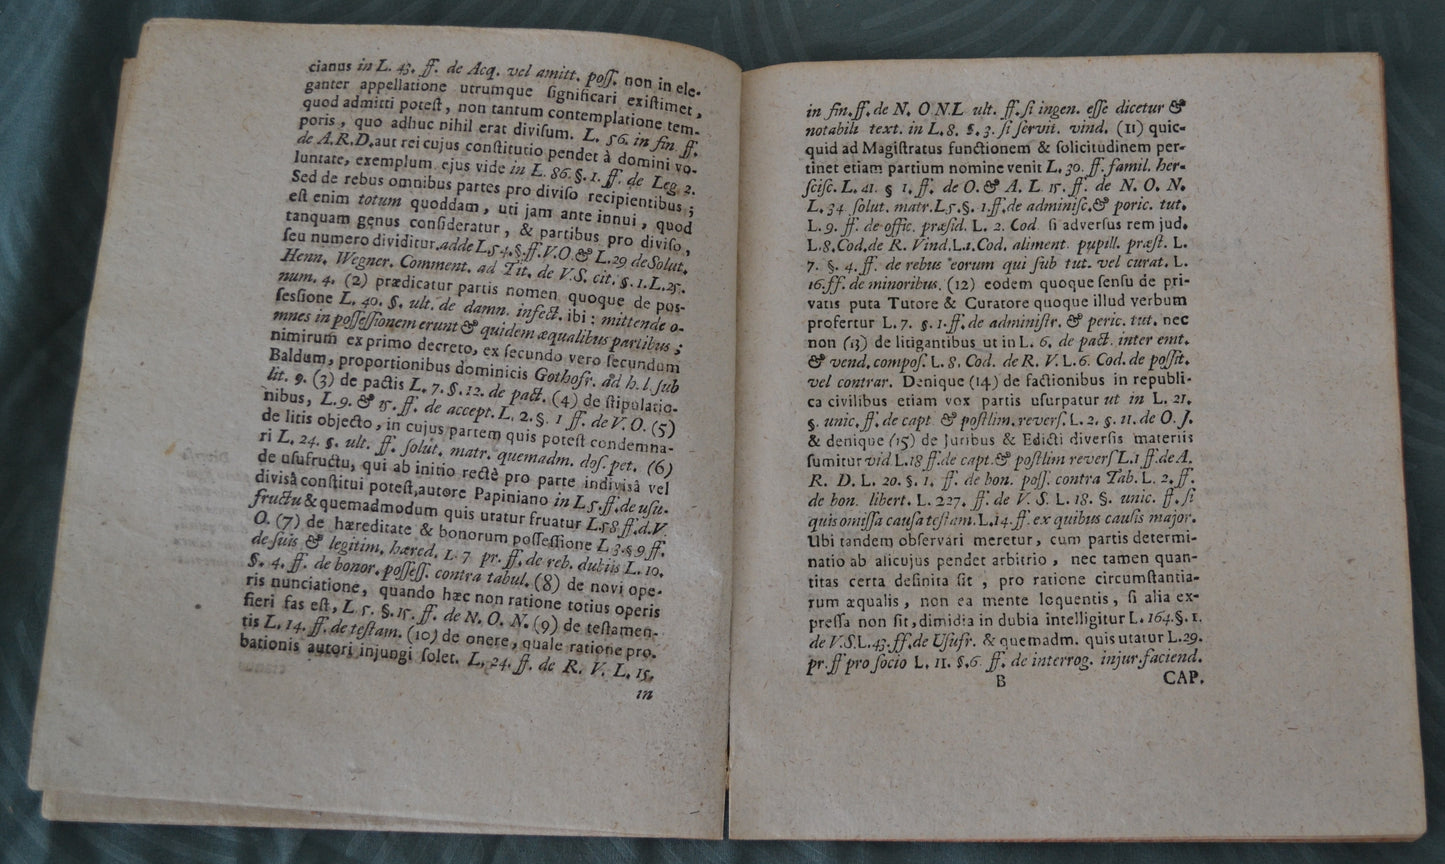 cianus in L. 43. ff. de Acq. vel amitt. poſſ. non in ele-
ganter appellatione utrumque ſignificari exiſtimet,
quod admitti poteſt, non tantum contemplatione tem-
poris, quo adhuc nihil erat diviſum. L. 56. in fin ff.
de A.R.D. aut rei cujus conſtitutio pendet à domini vo-
luntate, exemplum ejus vide in L. 86. §. 1. ff. de Leg. 2.
Sed de rebus omnibus partes pro diviſo recipientibus;
eſt enim totum quoddam, uti jam ante innui, quod
tanquam genus conſideratur, & partibus pro diviſo,
ſeu numero dividitur. adde L. 54. §. ff. V. O & L. 29 de Solut.
Henn. Wegner. Comment. ad Tit. de V.S. cit. §. 1. L. 25.
num. 4. (2) prædicatur partis nomen quoque de poſ-
ſeſſione L. 40. §. ult. de damn. infect. ibi: mittende o-
mnes in poſſeſſionem erunt & quidem æqualibus partibus;
nimirum ex primo decreto, ex ſecundo vero ſecundum
Baldum, proportionibus dominicis Gothofr. ad h. l. ſub
lit. 9. (3) de pactis L. 7. §. 12. de pact. (4) de ſtipulatio-
nibus, L. 9. & 15. ff. de accept. L. 2. §. 1 ff. de V. O. (5)
de litis objecto, in cujus partem quis poteſt condemna-
ri L. 24. §. ult. ff. ſolut. matr. quemadm. doſ. pet. (6)
de uſufructu, qui ab initio rectè pro parte indiviſâ vel
diviſâ conſtitui poteſt, autore Papiniano in L. 5. ff. de uſu-
fructu & quemadmodum quis utatur fruatur L. 58. ff. d. V.
O. (7) de hæreditate & bonorum poſſeſſione L 3. §9 ff.
de ſuis & legitim. hæred. L 7 pr. ff. de reb. dubiis L. 10.
§. 4. ff. de bonor. poſſeſſ. contra tabul. (8) de novi ope-
ris nunciatione, quando hæc non ratione totius operis
fieri fas eſt, L 5. §. 15. ff. de N. O. N. (9) de teſtamen-
tis L. 14. ff. de teſtam. (10) de onere, quale ratione pro-
bationis autori injungi ſolet. L. 24. ff. de R. V. L. 15.
in
in fin. ff. de N. O N. L ult. ff. ſi ingen. eſſe dicetur &
notabile text. in L. 8. §. 3. ſi ſervit. vind. (11) quic-
quid ad Magiſtratus functionem & ſolicitudinem per-
tinet etiam partium nomine venit L. 30. ff. famil. her-
ſciſc. L. 41. § 1. ff. de O. & A. L 15. ff. de N. O. N.
L. 34 ſolut. matr. L 5. §. 1. ff. de adminiſc. & poric. tut.
L. 9. ff. de offic. præſid. L. 2. Cod ſi adverſus rem jud.
L. 8. Cod. de R. Vind. L. 1. Cod. aliment. pupill. præſt. L.
7. §. 4. ff. de rebus eorum qui ſub tut. vel curat. L.
16. ff. de minoribus. (12) eodem quoque ſenſu de pri-
vatis puta Tutore & Curatore quoque illud verbum
profertur L. 7. §. 1. ff. de adminiſtr. & peric. tut. nec
non (13) de litigantibus ut in L. 6. de pact. inter emt.
& vend. compoſ. L. 8. Cod. de R. V. L. 6. Cod. de poſſit.
vel contrar. Denique (14) de factionibus in republi-
ca civilibus etiam vox partis uſurpatur ut in L. 21.
§. unic. ff. de capt & poſtlim. reverſ. L. 2. §. 11. de O. J.
& denique (15) de Juribus & Edicti diverſis materiis
ſumitur vid L. 18 ff. de capt. & poſtlim reverſ L. 1 ff. de A.
R. D. L. 20. §. 1. ff. de bon. poſſ. contra Tab. L. 2. ff.
de bon. libert. L. 227. ff. de V. S. L. 18. §. unic. ff. ſi
quis omiſſa cauſa teſtam. L. 14. ff. ex quibus cauſis major.
Ubi tandem obſervari meretur, cum partis determi-
natio ab alicujus pendet arbitrio, nec tamen quan-
titas certa definita ſit, pro ratione circumſtantia-
rum æqualis, non ea mente loquentis, ſi alia ex-
preſſa non ſit, dimidia in dubia intelligitur L. 164. §. 1.
de V. S. L. 43. ff. de Uſufr. & quemadm. quis utatur L. 29.
pr. ff pro ſocio L. 11. §. 6 ff. de interrog. injur. faciend.
B CAP.